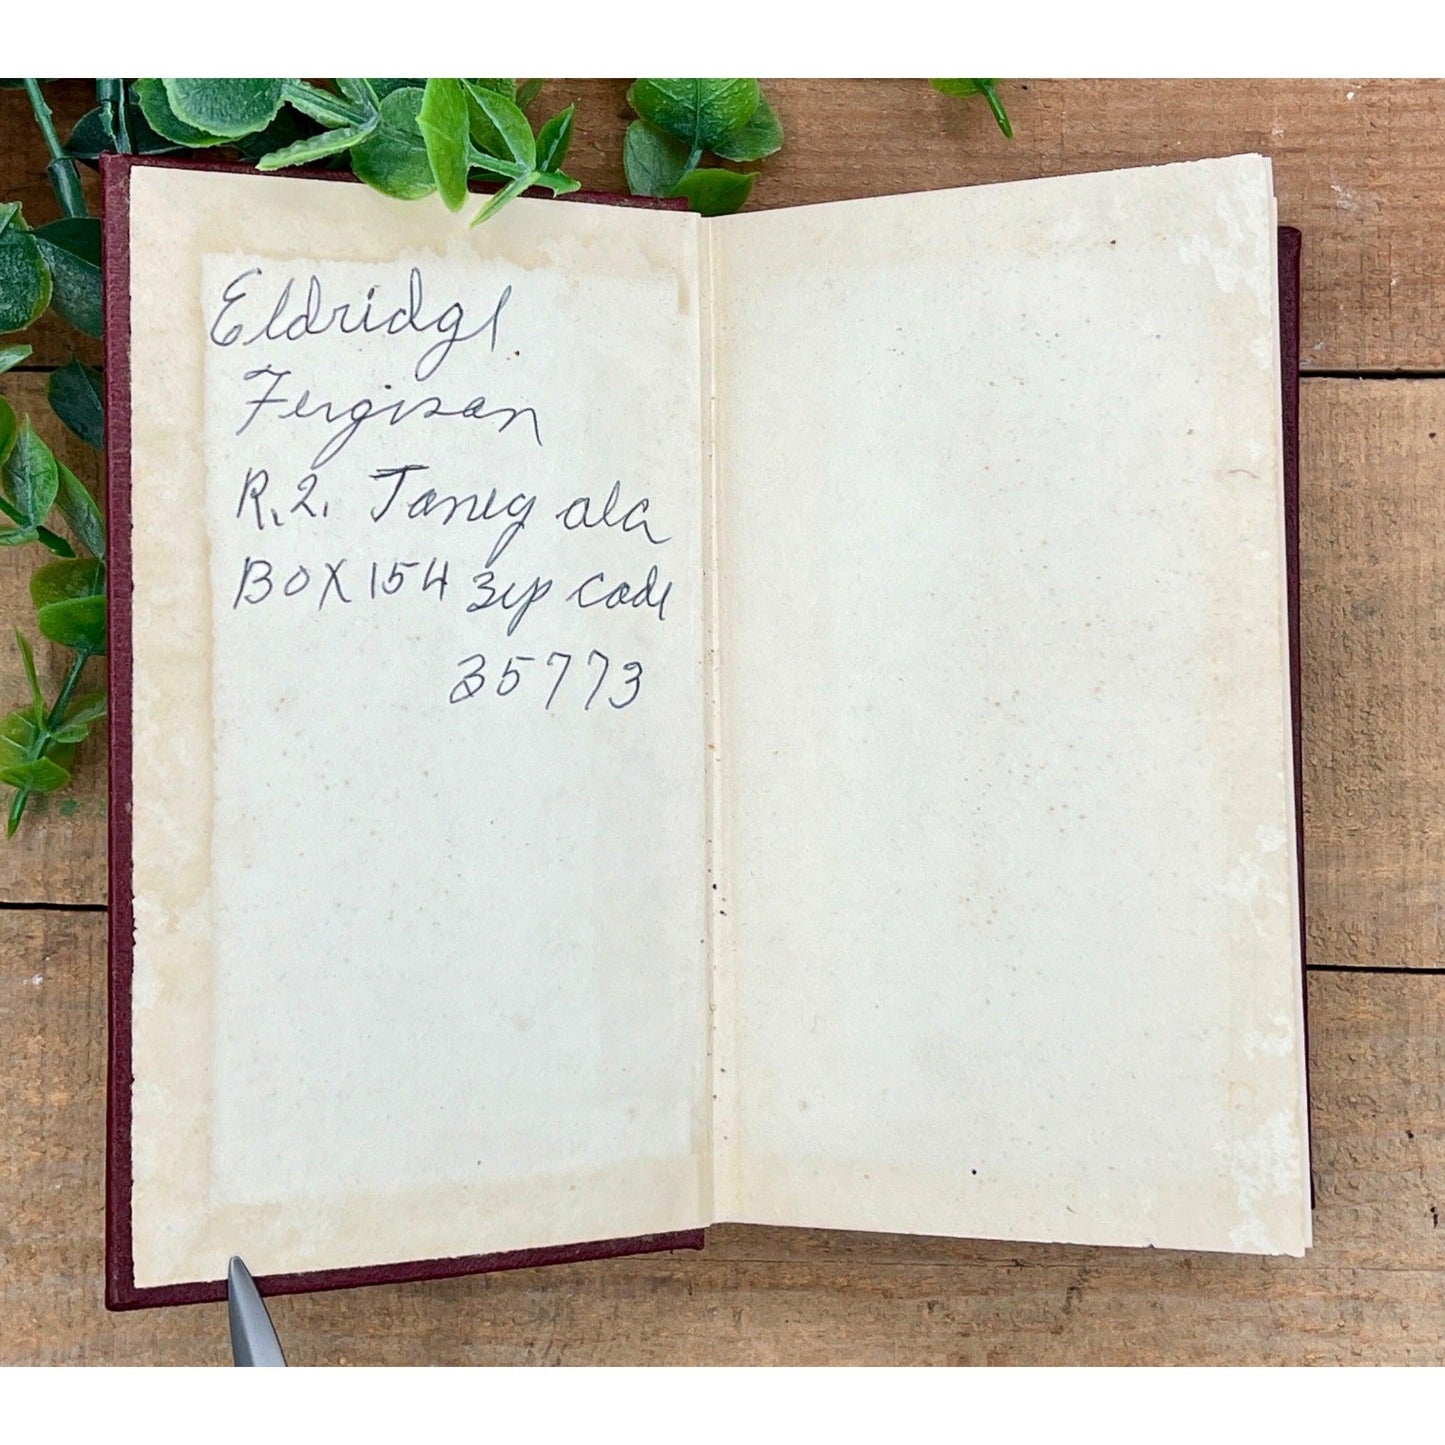 Eldridge
Ferguson
R.2. Toney ala
BOX 154 Zip Code
35773